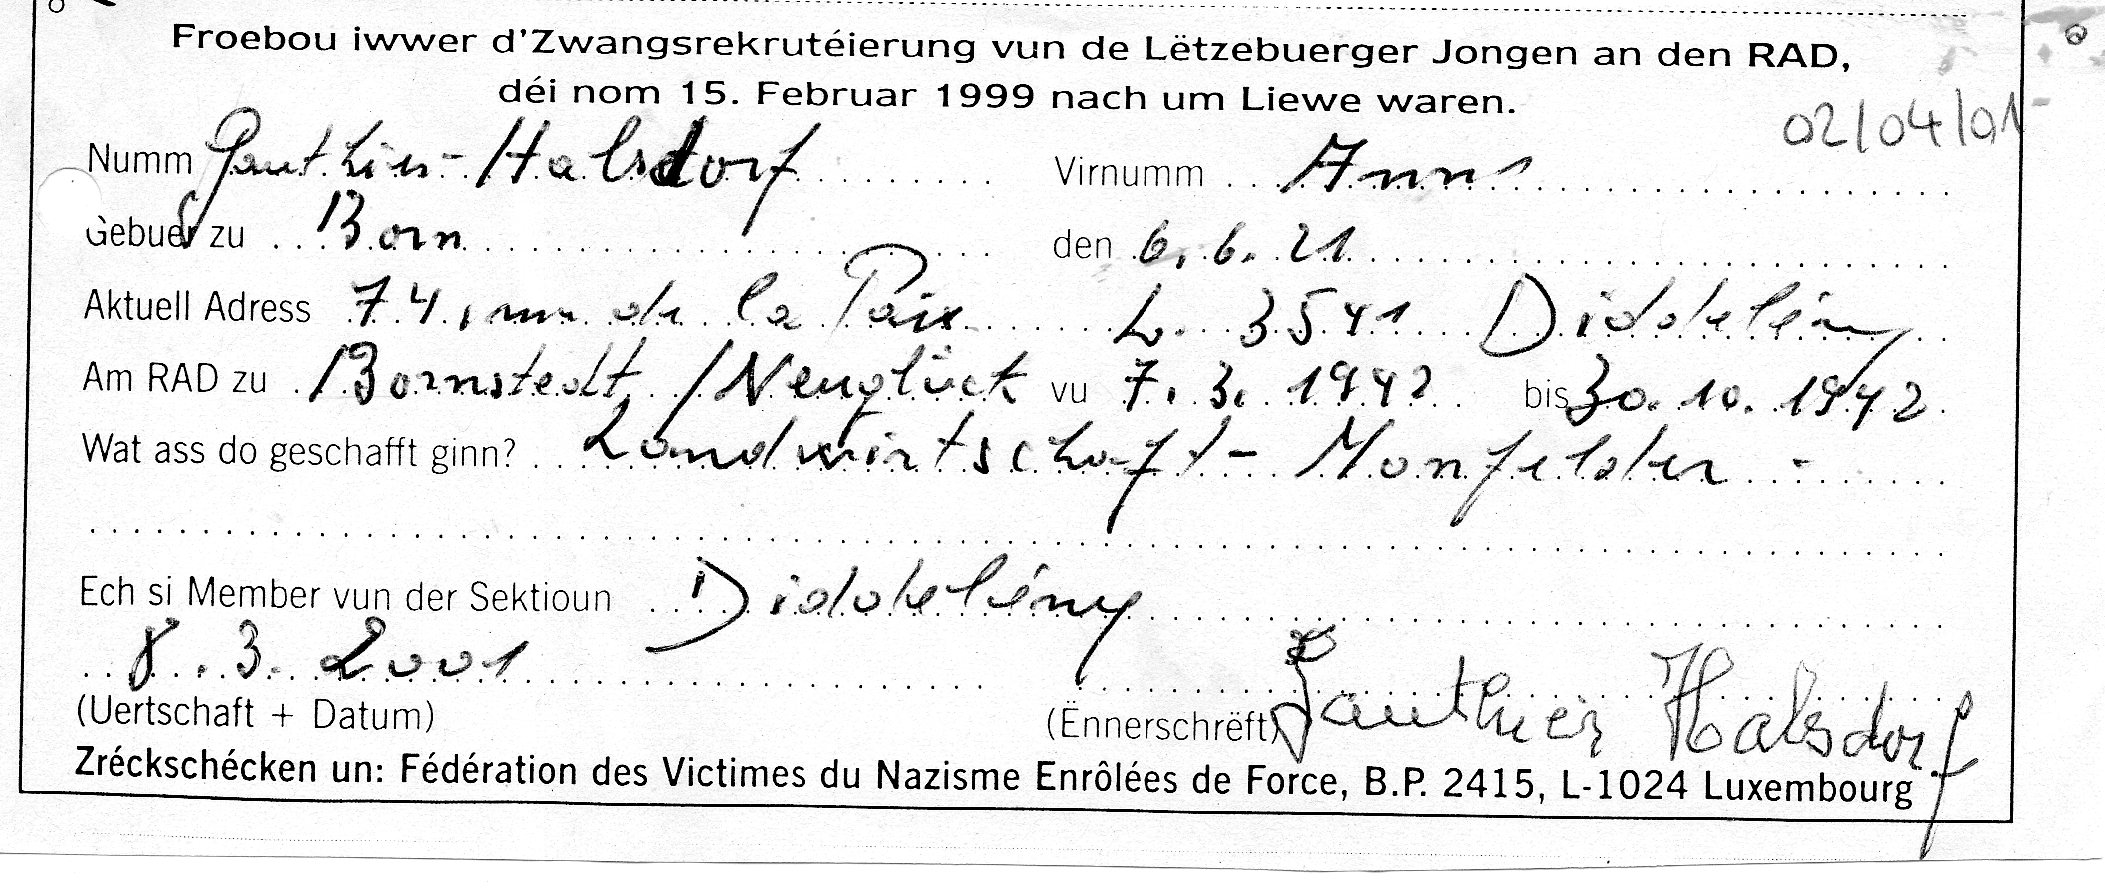 Froebou iwwer d'Zwangsrekrutéierung vun de Lëtzebuerger Jongen an den RAD,
déi nom 15. Februar 1999 nach um Liewe waren.
02/04/01
Numm Gauthier-Halsdorf Virnumm Anna
Gebuer zu Born den 6.6.21
Aktuell Adress 74, rue de la Paix L. 3541 Diddeléng
Am RAD zu Bornstedt/Neuglück vu 7.3.1942 bis 30.10.1942
Wat ass do geschafft ginn? Landwirtschaft - Monfelder -
Ech si Member vun der Sektioun Diddeléng
8.3.2001
(Uertschaft + Datum) (Ënnerschrëft) Gauthier Halsdorf
Zréckschécken un: Fédération des Victimes du Nazisme Enrôlées de Force, B.P. 2415, L-1024 Luxembourg